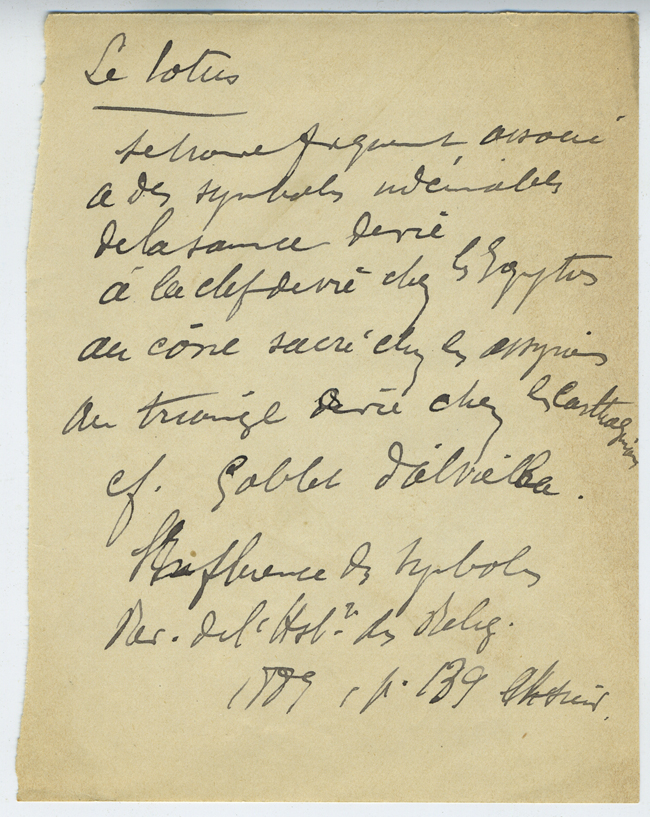 Le lotus
se trouve fréquent associé
a des symboles indéniables
de la de vie
à la clef de vie chez les Egyptens
au cône sacré chez les assyriens
au triangle de vie chez les Carthaginois
cf. Goblet d'alviella.
Influence des symboles
Rev. de l'Hist.re des Relig.
1889, p. 139